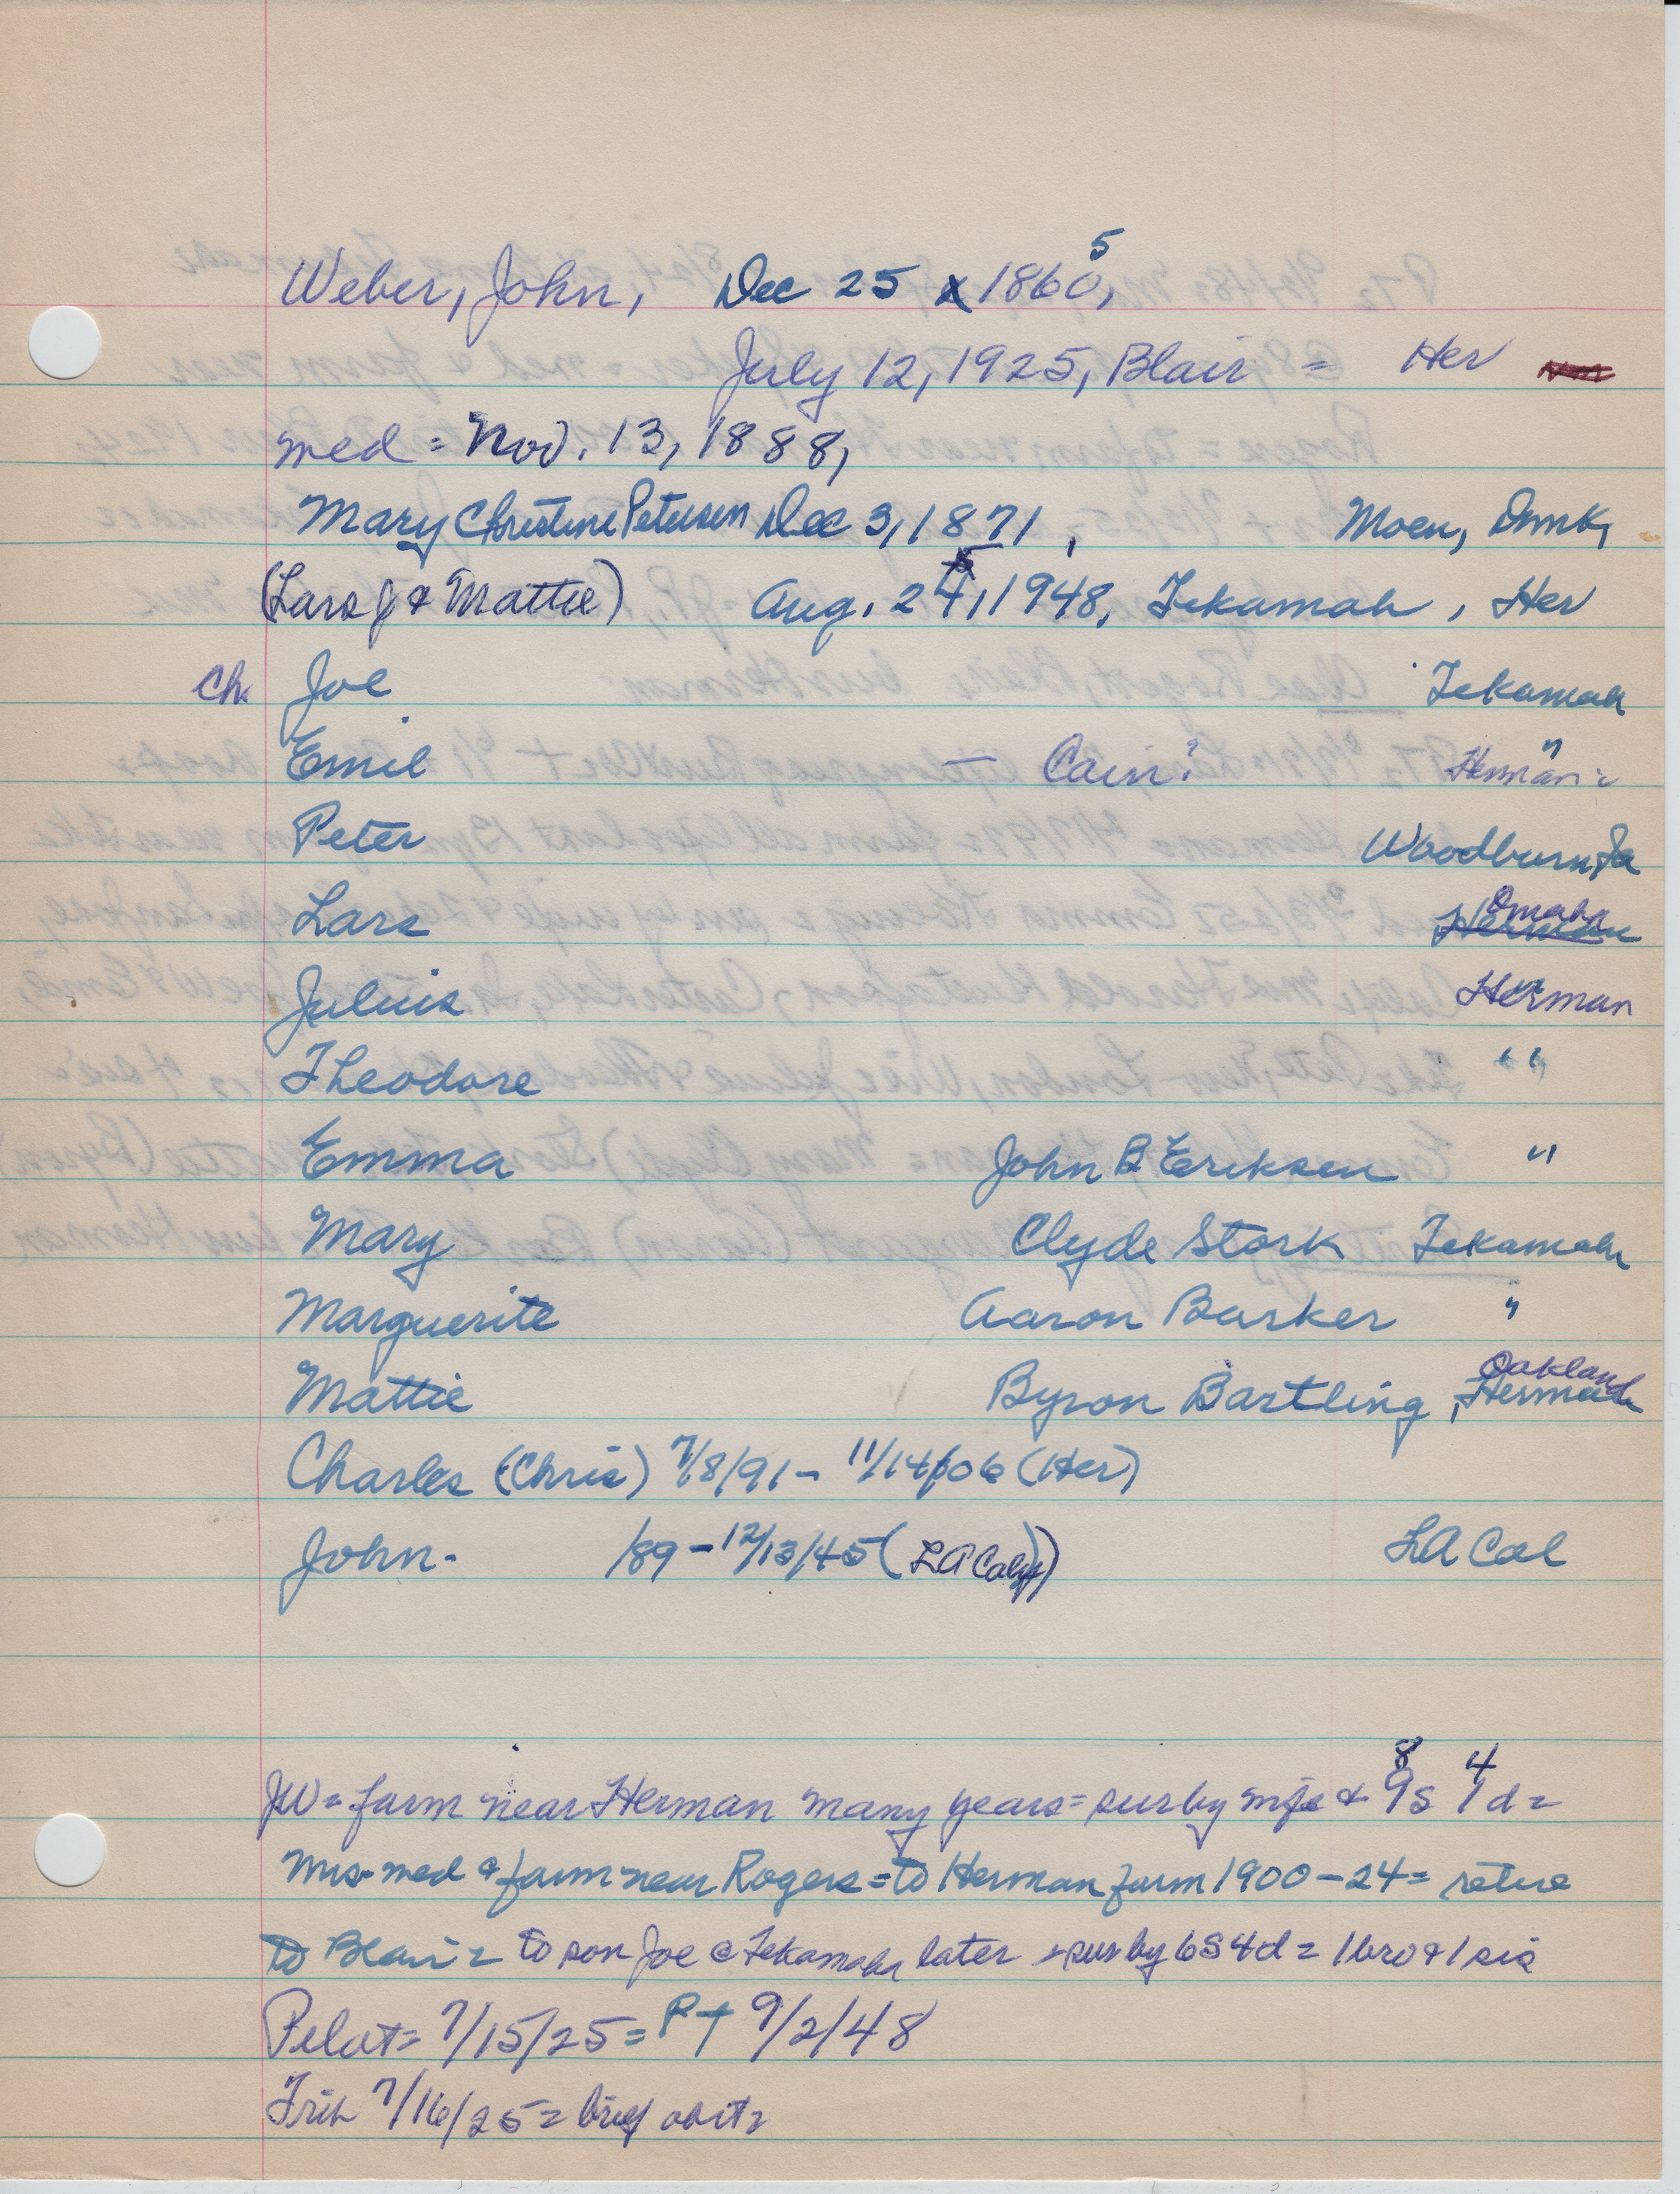 5
Weber, John, Dec 25 x 1860,
July 12, 1925, Blair = Her
med = Nov. 13, 1888,
Mary Christine Petersen Dec 3, 1871, Moen, Dnmk,
(Lars J & Mattie) Aug. 24, 1948, Tekamah, Her
Ch. Joe Tekamah
Emil — Cain? Herman "
Peter Woodburn, Ia
Omaha
Lars Herman
Julius Herman
Theodore "
Emma John B Eriksen "
Mary Clyde Stork Tekamah
Marguerite Aaron Barker "
Oakland
Mattie Byron Bartling, Herman
Charles (Chris) 7/8/91 - 11/14/06 (Her)
John - /89 - 12/13/45 (LA Calif) LA Cal
8 4
JW = farm near Herman many years = sur by wife & 9s 1d =
Mrs - med & farm near Rogers = to Herman farm 1900 - 24 = retire
to Blair = to son Joe @ Tekamah later = sur by 6S 4d = 1 bro & 1 sis
Pilot = 7/15/25 = PT 9/2/48
Trib 7/16/25 = brief obit =